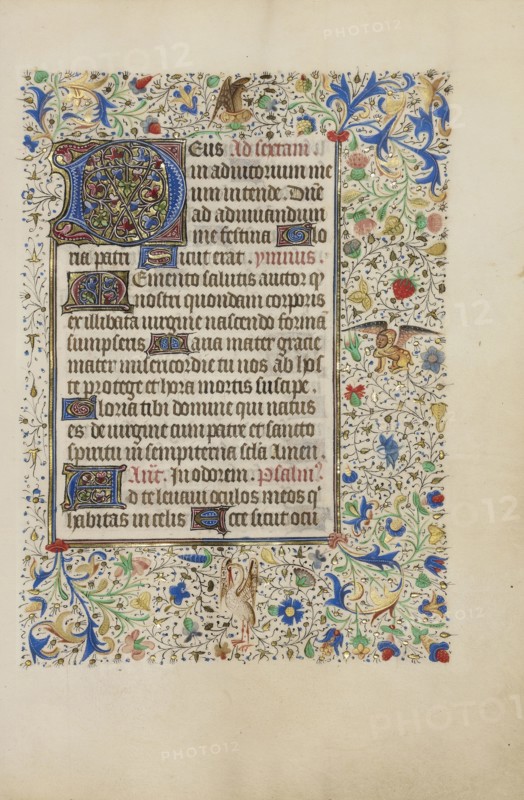 Deus Ad sextam
in adiutorium me
um intende. Dñe
ad adiuuandum
me festina Glo
ria patri Sicut erat. ymnus.
Memento salutis auctor q
nostri quondam corporis
ex illibata uirgine nascendo formã
sumpseris Maria mater gracie
mater misericordie tu nos ab hos
te protege et hora mortis suscipe.
Gloria tibi domine qui natus
es de uirgine cum patre et sancto
spiritu in sempiterna scła Amen.
Añt. In odorem. Psalm⁹
Ad te leuaui oculos meos q'
habitas in celis Ecce sicut ocu
PHOTO12
PHOTO12
PHOTO12
PHOTO12